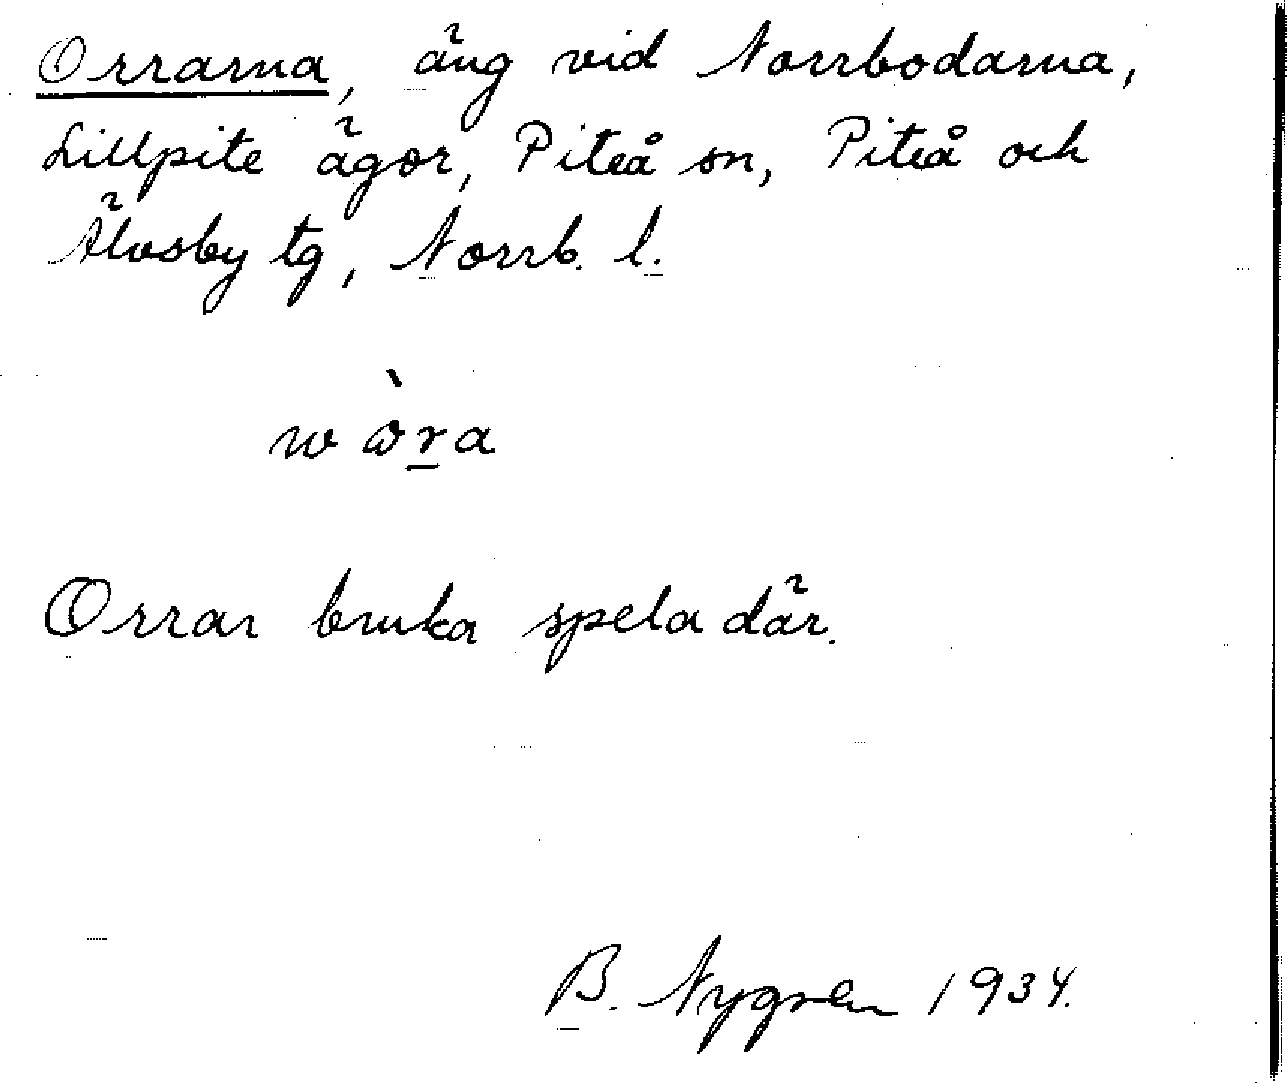 Orrarna, äng vid Norrbodarna,
Lillpite ägor, Piteå sn, Piteå och
Älvsby tg, Norrb. l.
Orrar bruka spela där.
B. Nygren 1934.